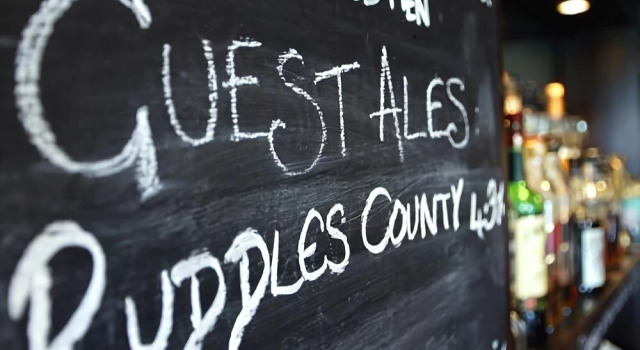 GUEST ALES:
RUDDLES COUNTY 4.3%